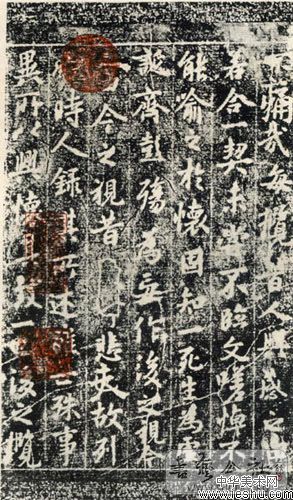 痛哉每攬昔人興感之由
若合一契未嘗不臨文嗟悼不
能喻之於懷固知一死生為虛
誕齊彭殤為妄作後之視今
今之視昔悲夫故列
時人錄其所述殊事
異所以興懷其致一也後之攬
中华美术网
www.ieshu.com